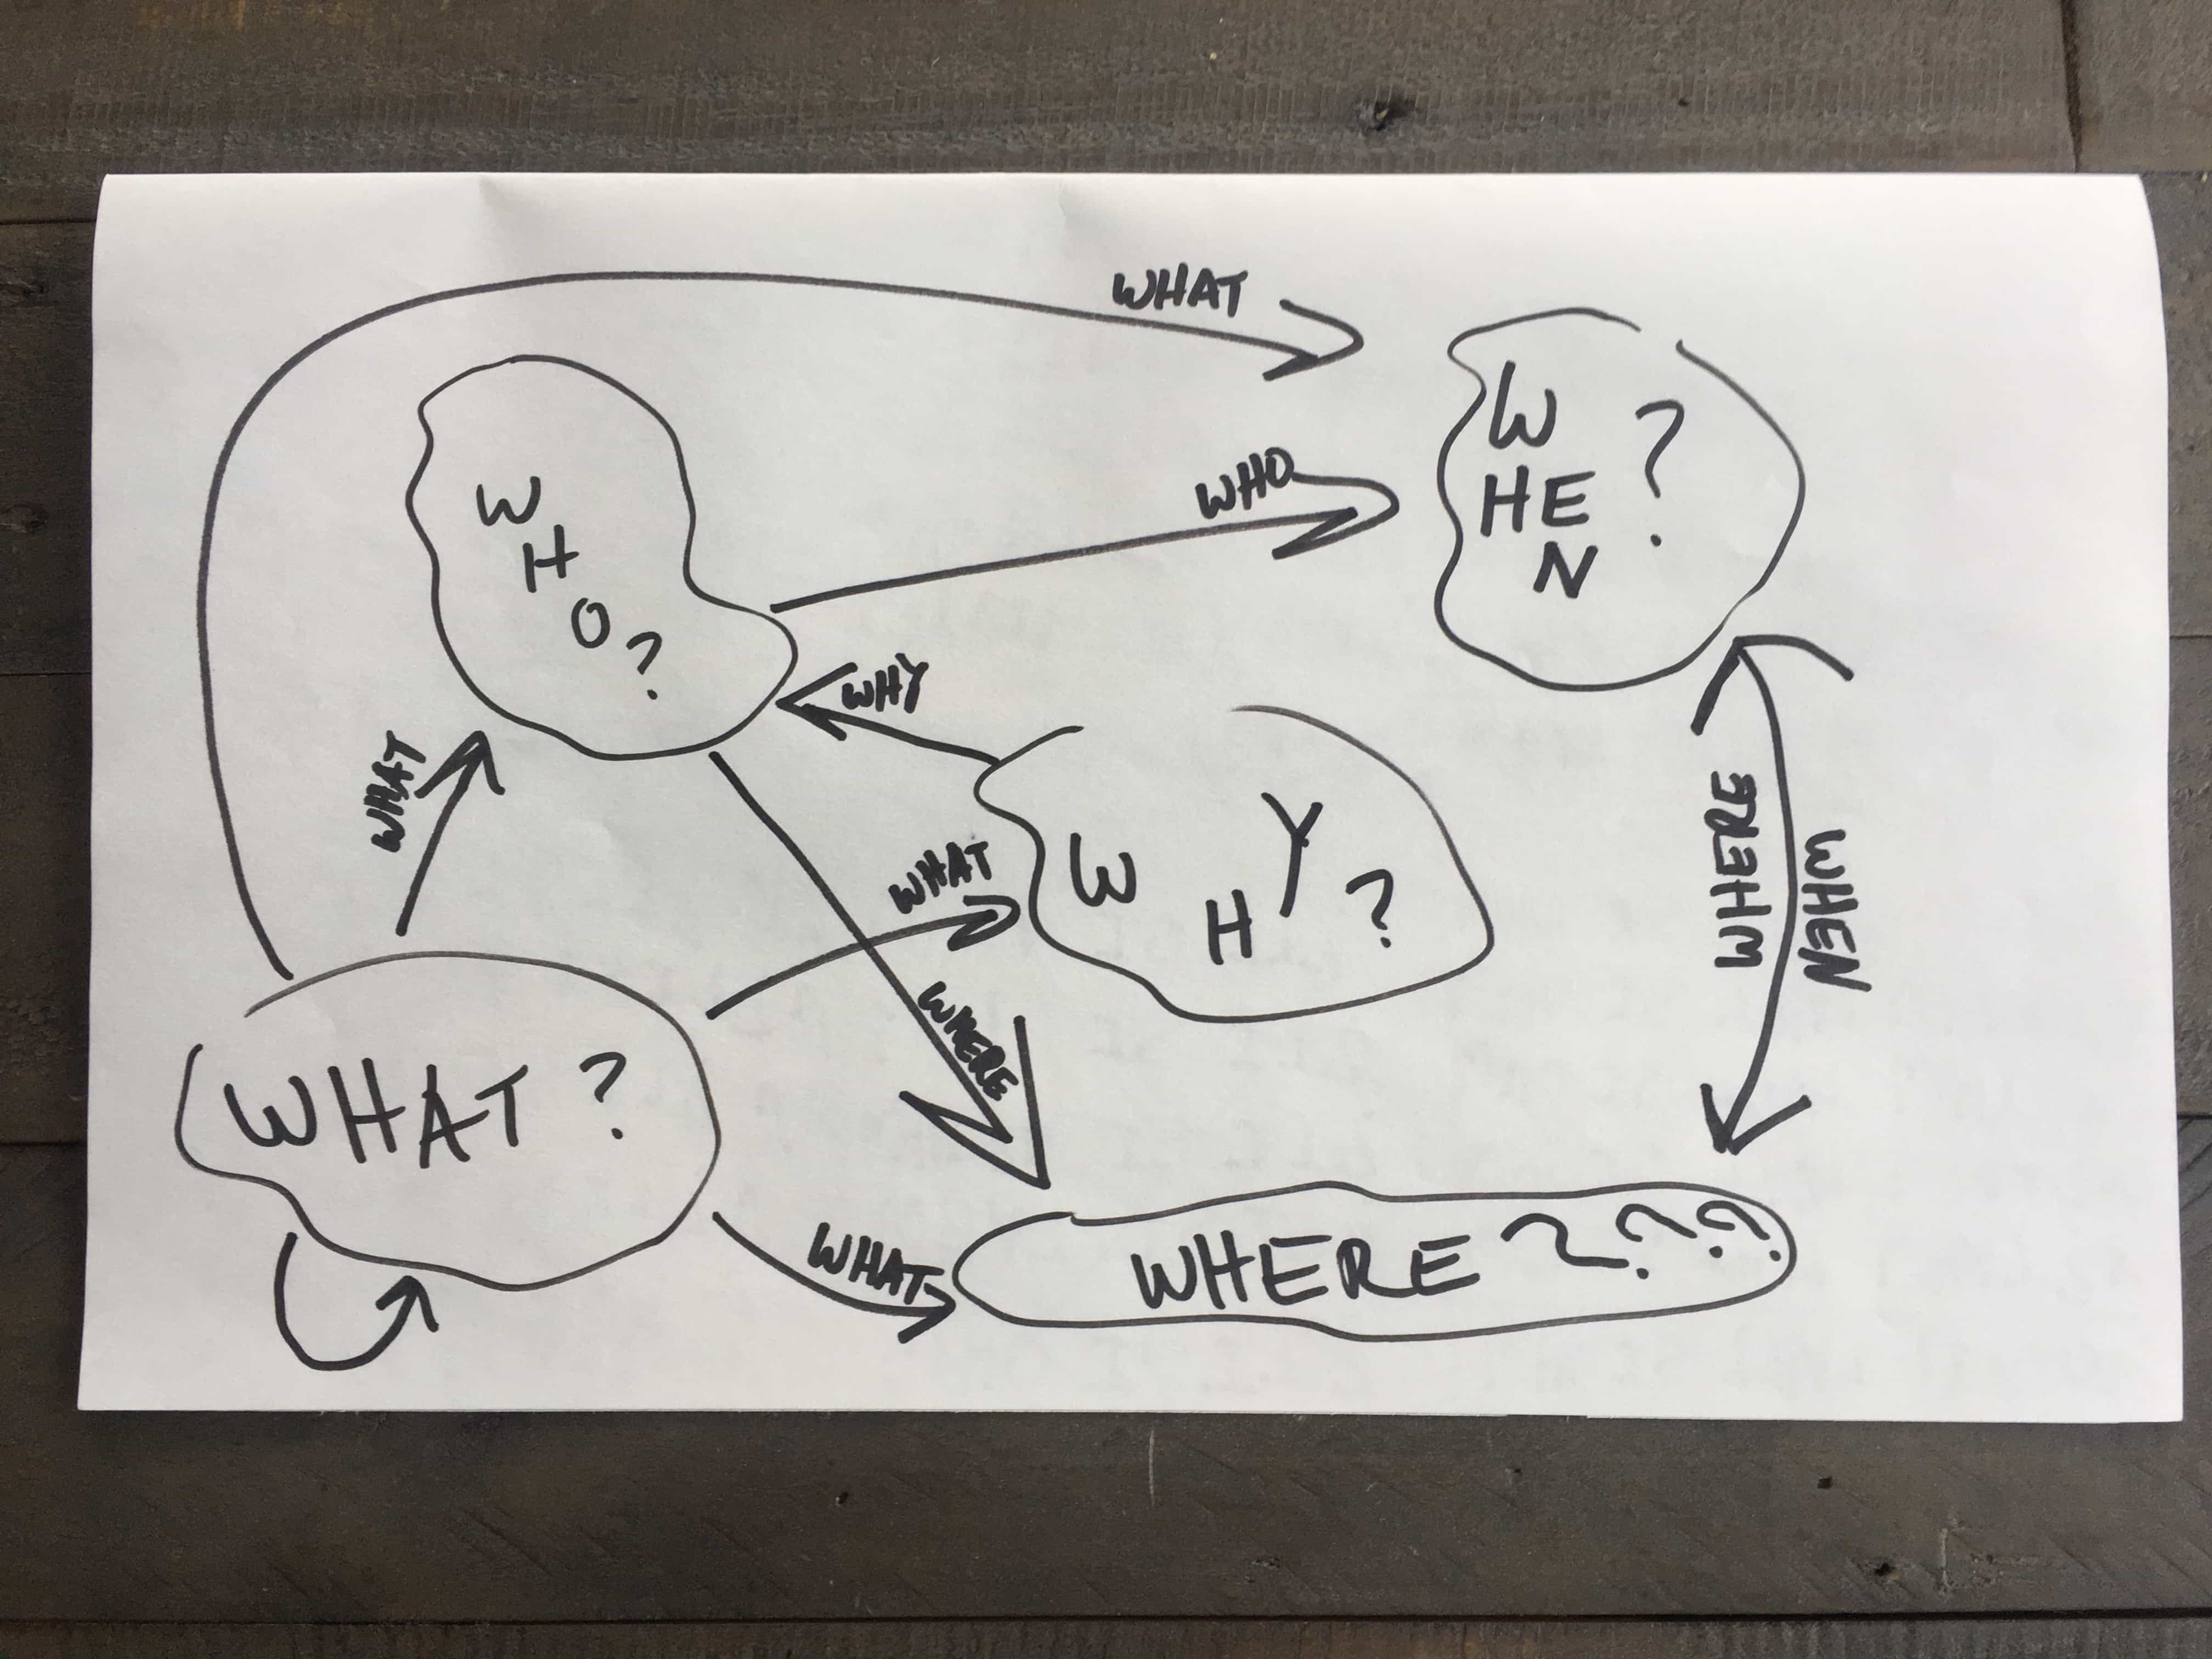 WHAT
W
H
O
?
WHO
W
HE ?
N
WHY
WHAT
W H Y ?
WHAT
WHERE
WHERE
WHEN
WHAT ?
WHAT
WHERE ? ? ?